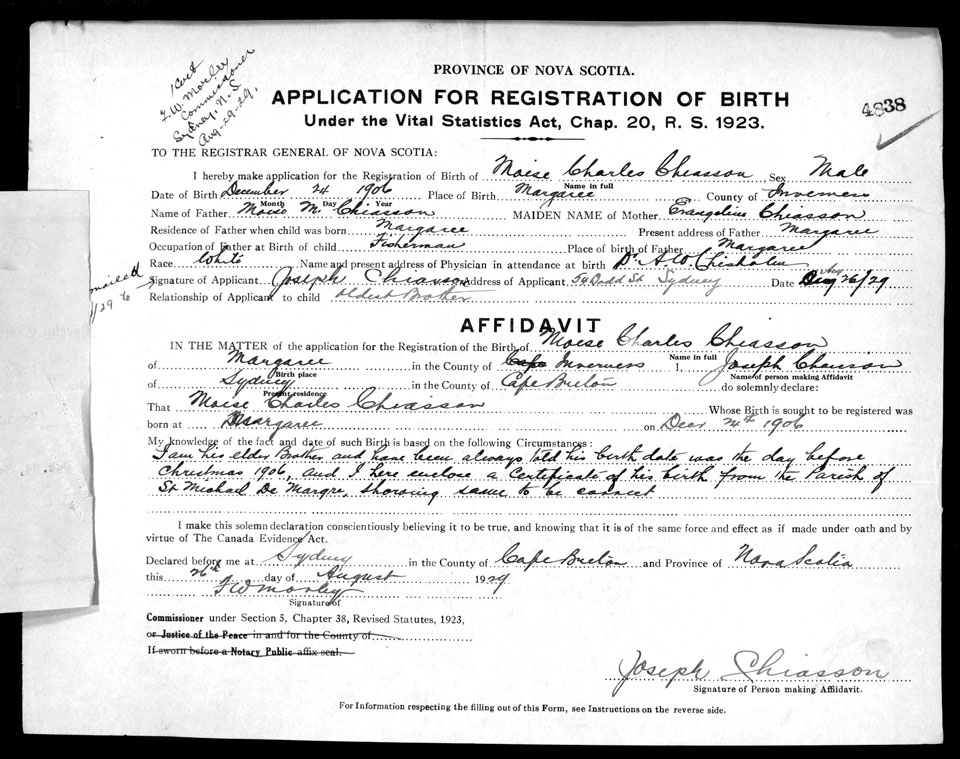 Cert
F. W. Morley
Commissioner
Sydney. N. S
Aug-29-29.
PROVINCE OF NOVA SCOTIA.
APPLICATION FOR REGISTRATION OF BIRTH
4838
Under the Vital Statistics Act, Chap. 20, R. S. 1923.
TO THE REGISTRAR GENERAL OF NOVA SCOTIA:
I hereby make application for the Registration of Birth of Moise Charles Chiasson Sex Male
Name in full
Date of Birth December 24 1906 Place of Birth Margaree County of Inverness
Month Day Year
Name of Father Moise M. Chiasson MAIDEN NAME of Mother Evangeline Chiasson
Residence of Father when child was born Margaree Present address of Father Margaree
Occupation of Father at Birth of child Fisherman Place of birth of Father Margaree
Race White Name and present address of Physician in attendance at birth Dr A W Chisholm
Signature of Applicant Joseph Chiasson Address of Applicant 54 Dodd St. Sydney Date Aug 26/29
mailed to
/29
Relationship of Applicant to child oldest Brother
AFFIDAVIT
IN THE MATTER of the application for the Registration of the Birth of Moise Charles Chiasson
Name in full
of Margaree in the County of Cape Inverness I, Joseph Chiasson
Birth place Name of person making Affidavit
of Sydney in the County of Cape Breton do solemnly declare:
Present residence
That Moise Charles Chiasson Whose Birth is sought to be registered was
born at Margaree on Decr 24th 1906
My knowledge of the fact and date of such Birth is based on the following Circumstances:
I am his elder Brother and have been always told his birth date was the day before
Christmas 1906, and I here enclose a Certificate of his birth from the Parish of
St Michael De Margre, showing same to be correct
I make this solemn declaration conscientiously believing it to be true, and knowing that it is of the same force and effect as if made under oath and by
virtue of The Canada Evidence Act.
Declared before me at Sydney in the County of Cape Breton and Province of Nova Scotia
this 26th day of August 1929
F W Morley
Signature of
Commissioner under Section 5, Chapter 38, Revised Statutes, 1923,
or Justice of the Peace in and for the County of
If sworn before a Notary Public affix seal.
Joseph Chiasson
Signature of Person making Affidavit.
For Information respecting the filling out of this Form, see Instructions on the reverse side.